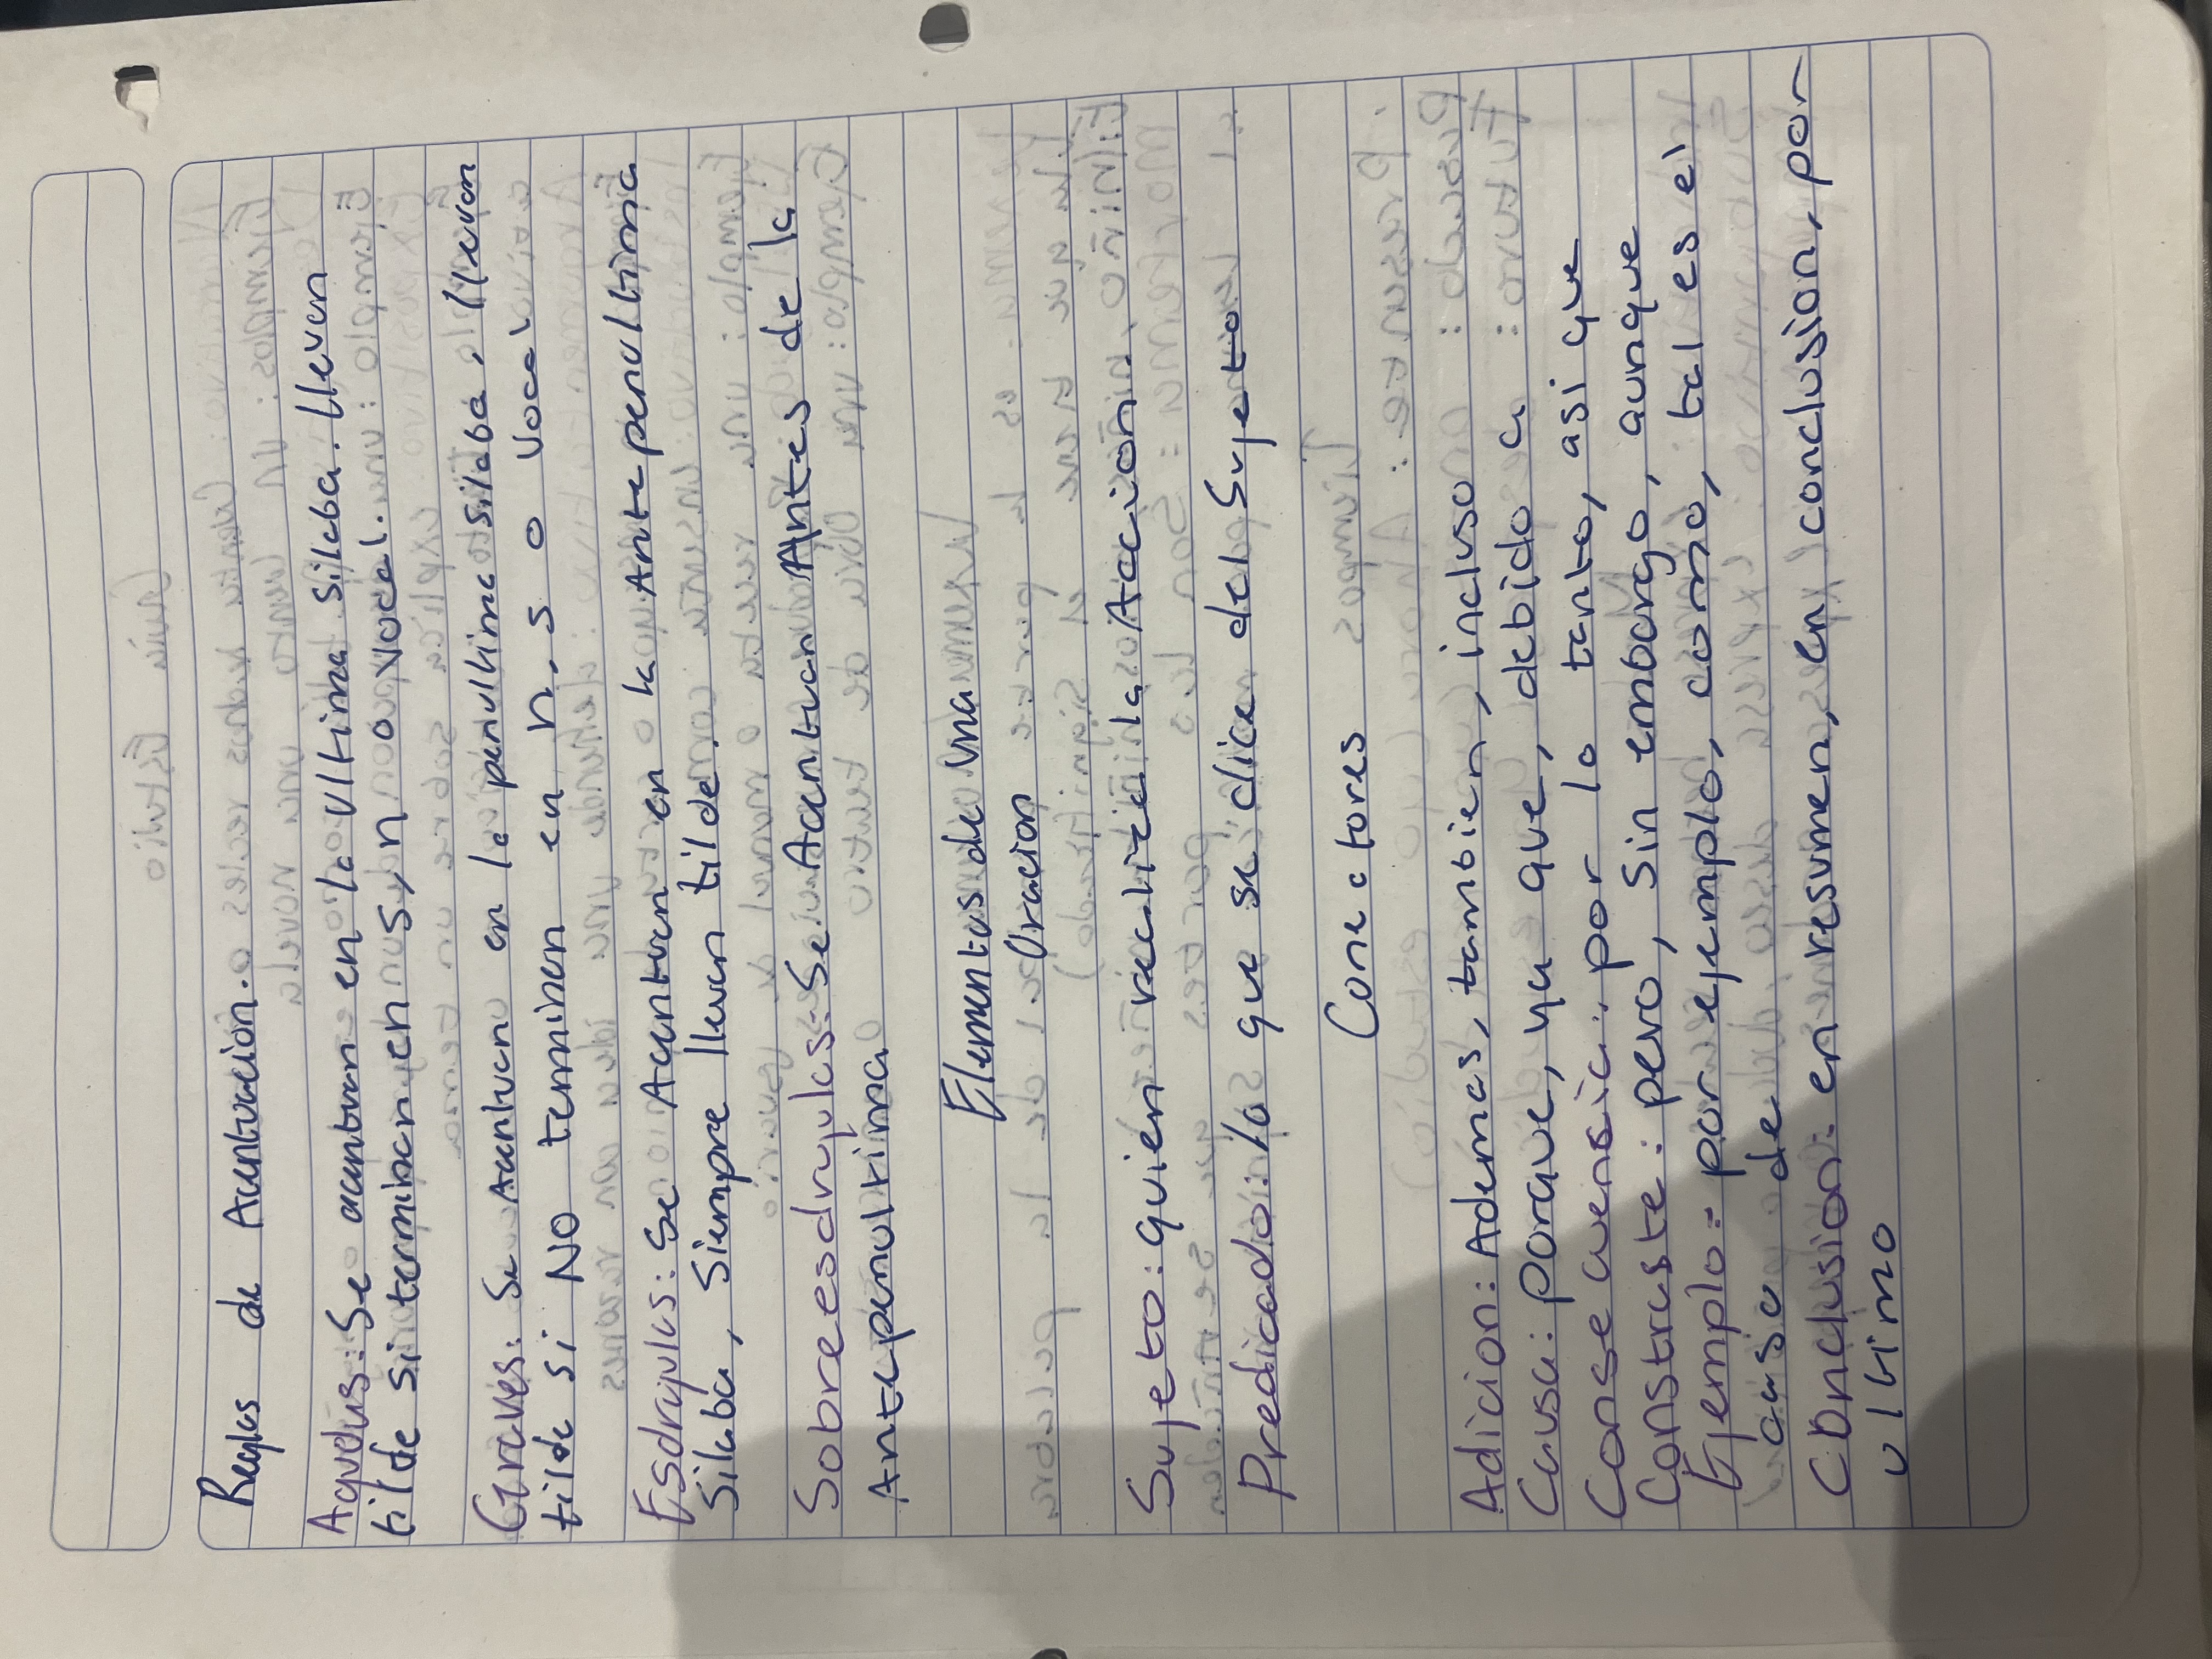 Reglas de Acentuacion.
Aguedus: Se acentuan en la ultima silaba. llevan
tilde si terminan en s, n o vocal.
Graves: Se Acentuan en la penultima silaba, llevan
tilde si NO terminen en n, s o vocal
Esdrujulas: Se Acentuan en la Antepenultima
Silaba, Siempre llevan tilde.
Sobreesdrujulas: Se Acentuan Antes de la
Antepenultima
Elementos de una
Oracion
Sujeto: quien realiza la Accion.
Predicado: lo que se dice del Sujeto
Conectores
Adicion: Ademas, tambien, incluso
Causa: porque, ya que, debido a
Consecuensia: por lo tanto, asi que
Constraste: pero, sin embargo, aunque
Ejemplo: por ejemplo, como, tal es el
caso de
Conclusion: en resumen, en conclusion, por
ultimo